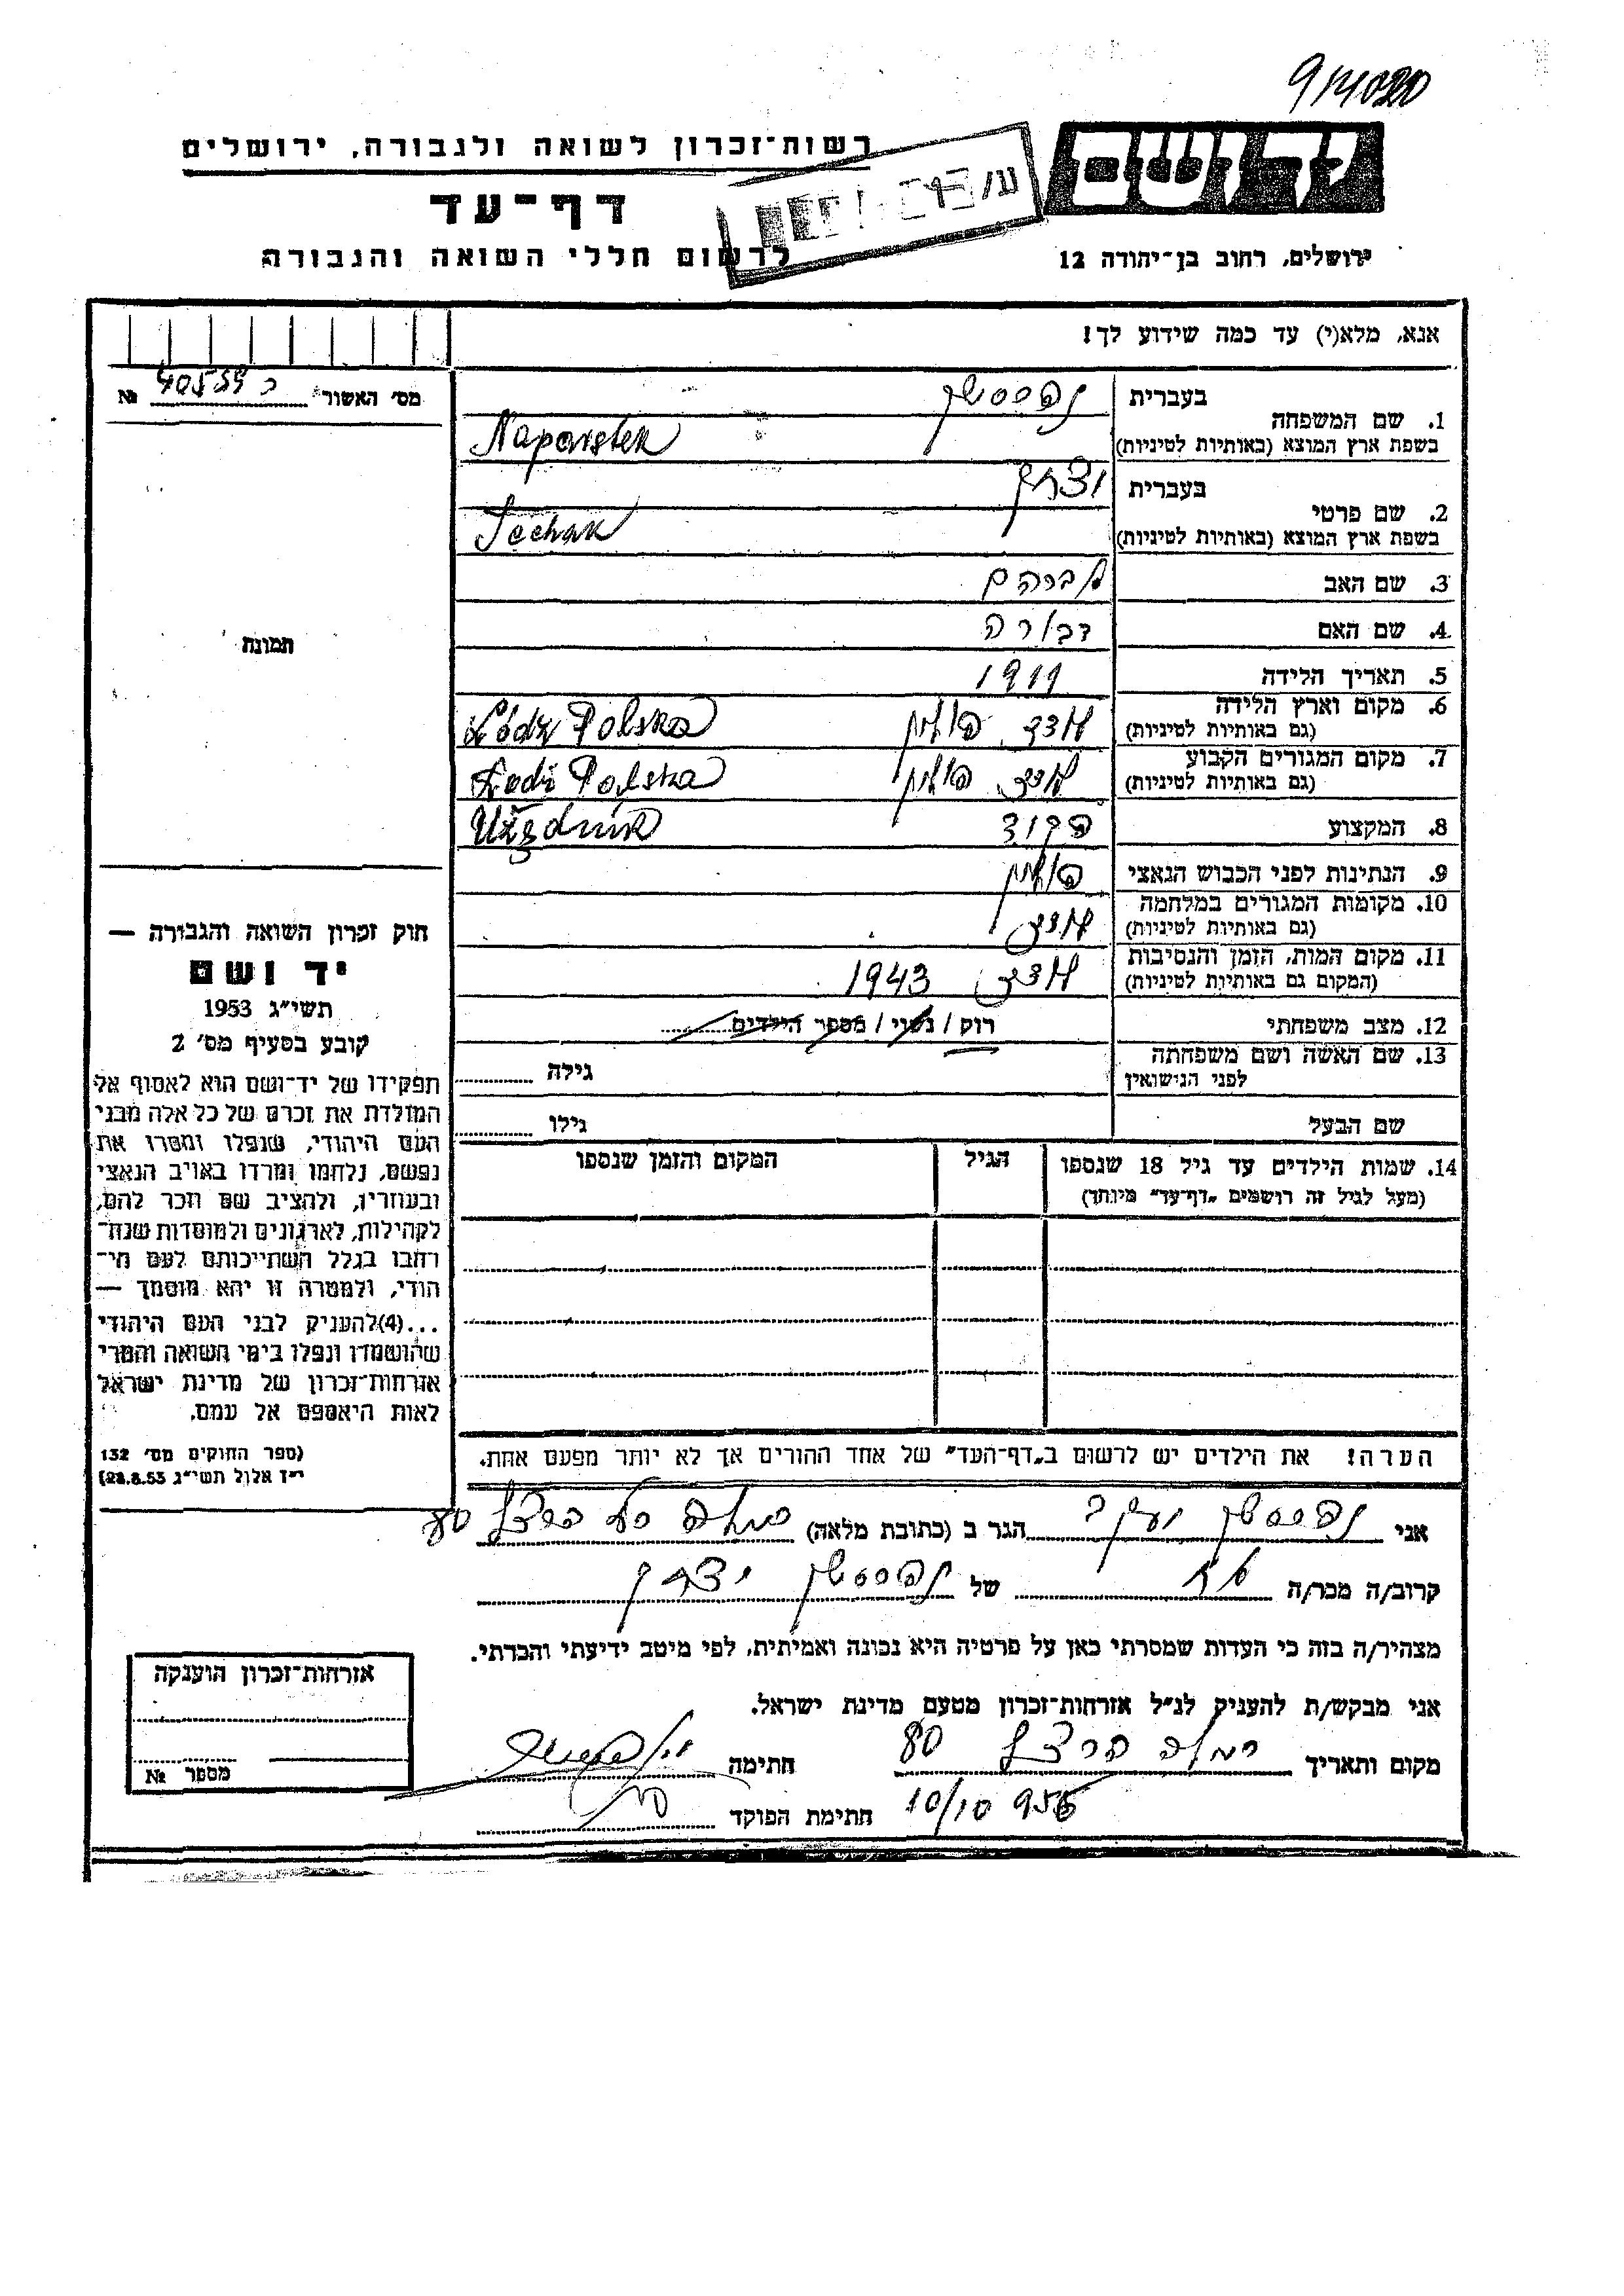 יד ושם
רשות־זכרון לשואה ולגבורה, ירושלים
דף־עד
לרשום חללי השואה והגבורה
ירושלים, רחוב בן־יהודה 12
אנא, מלא(י) עד כמה שידוע לך!
מס׳ האשור № 40559
תמונה
1. שם המשפחה בעברית
בשפת ארץ המוצא (באותיות לטיניות) Naparstek
2. שם פרטי בעברית יצחק
בשפת ארץ המוצא (באותיות לטיניות) Icchak
3. שם האב אברהם
4. שם האם דבורה
5. תאריך הלידה 1911
6. מקום וארץ הלידה לודז פולין Łódz Polska
(גם באותיות לטיניות)
7. מקום המגורים הקבוע לודז פולין Łodz Polska
(גם באותיות לטיניות)
8. המקצוע פקיד Użędnik
9. הנתינות לפני הכבוש הנאצי פולין
10. מקומות המגורים במלחמה לודז
(גם באותיות לטיניות)
11. מקום המות, הזמן והנסיבות לודז 1943
(המקום גם באותיות לטיניות)
12. מצב משפחתי רוק / נשוי / מספר הילדים
13. שם האשה ושם משפחתה גילה
לפני הנישואין
שם הבעל גילו
14. שמות הילדים עד גיל 18 שנספו הגיל המקום והזמן שנספו
(מעל לגיל זה רושמים „דף־עד" מיוחד)
הערה! את הילדים יש לרשום ב„דף־העד" של אחד ההורים אך לא יותר מפעם אחת.
חוק זכרון השואה והגבורה —
יד ושם
תשי״ג 1953
קובע בסעיף מס׳ 2
תפקידו של יד־ושם הוא לאסוף אל
המולדת את זכרם של כל אלה מבני
העם היהודי, שנפלו ומסרו את
נפשם, נלחמו ומרדו באויב הנאצי
ובעוזריו, ולהציב שם וזכר להם,
לקהילות, לארגונים ולמוסדות שנח־
רבו בגלל השתייכותם לעם הי־
הודי, ולמטרה זו יהא מוסמך —
...(4)להעניק לבני העם היהודי
שהושמדו ונפלו בימי השואה והמרי
אזרחות־זכרון של מדינת ישראל
לאות היאספם אל עמם.
(ספר החוקים מס׳ 132
י״ז אלול תשי״ג 28.8.53)
אני יעקב הגר ב (כתובת מלאה) רמלה הרצל 80
קרוב/ה מכר/ה אח של יצחק
מצהיר/ה בזה כי העדות שמסרתי כאן על פרטיה היא נכונה ואמיתית, לפי מיטב ידיעתי והכרתי.
אני מבקש/ת להעניק לנ״ל אזרחות־זכרון מטעם מדינת ישראל.
מקום ותאריך רמלה הרצל 80 חתימה
10/10 956 חתימת הפוקד
אזרחות־זכרון הוענקה
מספר №